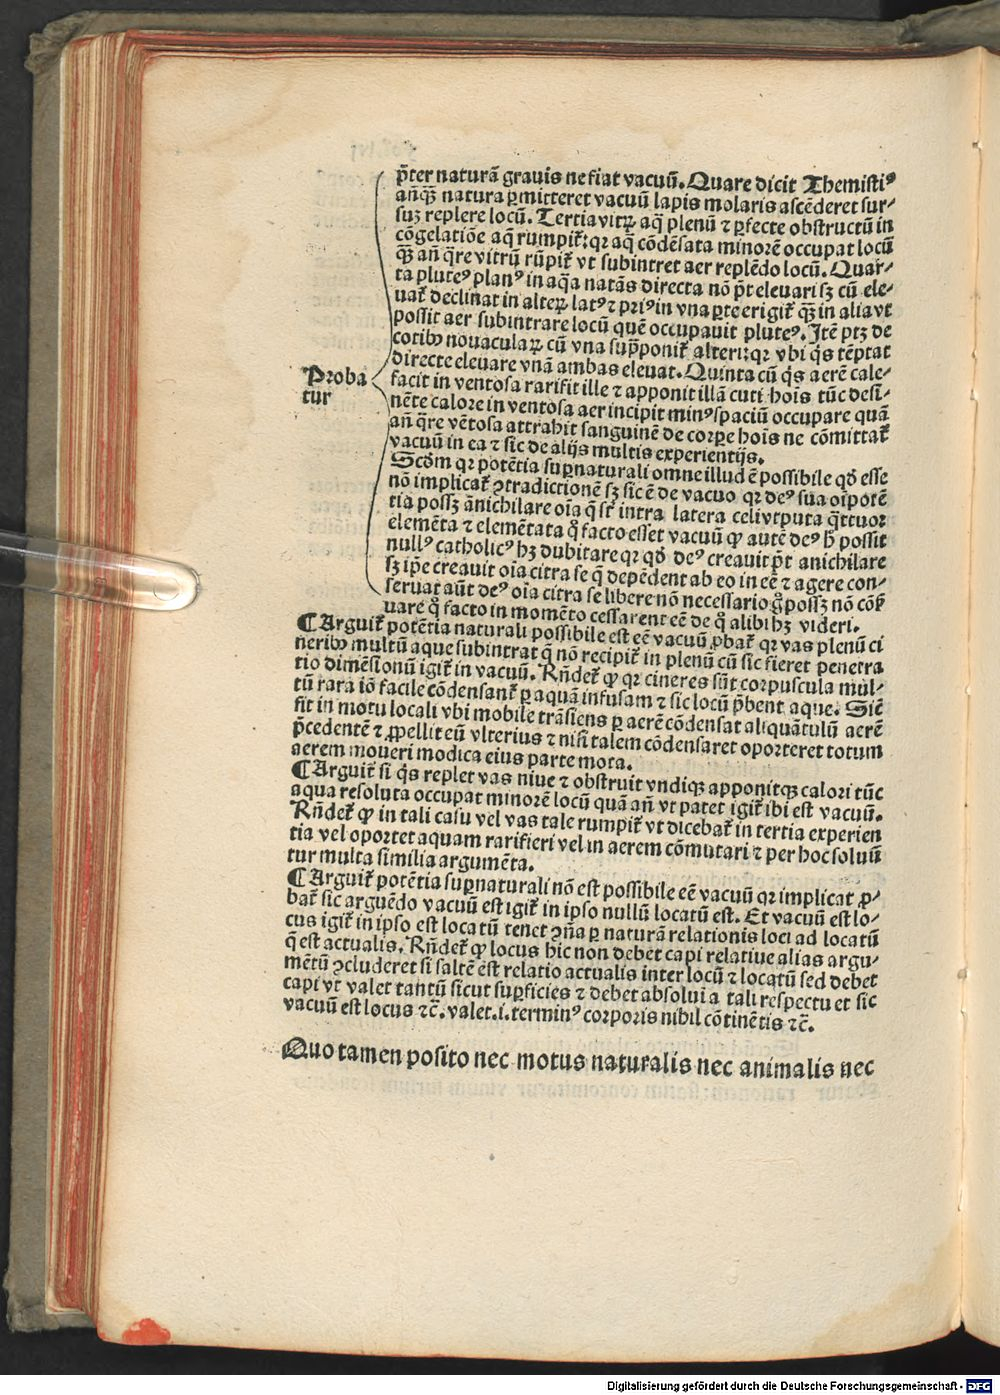 p̄ter naturā grauis ne fiat vacuū. Quare dicit Themistiꝰ
añq̄ꝫ natura ꝑmitteret vacuū lapis molaris ascēderet sur⸗
suꝫ replere locū. Tertia vitꝝ aq̄ plenū ⁊ ꝑfecte obstructū in
cōgelatiōe aq̄ rumpit̃: qꝛ aq̄ cōdēsata minorē occupat locū
q̄ꝫ añ q̄re vitrū rūpit̃ vt subintret aer replēdo locū. Quar⸗
ta pluteꝰ planꝰ in aq̄a natās directa nō pt̄ eleuari sꝫ cū ele⸗
uat̃ declinat in alteꝝ latꝰ ⁊ priꝰ in vna ꝑte erigit̃ q̄ꝫ in alia vt
possit aer subintrare locū quē occupauit pluteꝰ. Itē ptꝫ de
cotibꝰ nouaculaꝝ cū vna sup̄ponit̃ alteri: qꝛ vbi q̇s tēptat
directe eleuare vnā ambas eleuat. Quinta cū q̇s aerē cale⸗
Proba
tur
facit in ventosa rarifit ille ⁊ apponit illā cuti hoīs tūc desi⸗
nēte calore in ventosa aer incipit minꝰ spaciū occupare quā
añ q̄re vētosa attrahit sanguinē de corꝑe hoīs ne cōmittat̃
vacuū in ea ⁊ sic de alijs multis experientijs.
Scd̄m qꝛ potētia suꝑnaturali omne illud ē possibile qd̄ esse
nō implicat̃ ꝯtradictionē sꝫ sic ē de vacuo qꝛ deꝰ sua oīpotē
tia possꝫ ānichilare oīa q̄ st̄ intra latera celi vtputa q̄ttuor
elemēta ⁊ elemētata q̊ facto esset vacuū ꝙ autē deꝰ h̄ possit
nullꝰ catholicꝰ hꝫ dubitare qꝛ qd̄ deꝰ creauit pt̄ anichilare
sꝫ ip̄e creauit oīa citra se q̄ depēdent ab eo in eē ⁊ agere con⸗
seruat aūt deꝰ oīa citra se libere nō necessario g̊ possꝫ nō cōẜ
uare q̊ facto in momēto cessarent eē de q̊ alibi hꝫ videri.
¶ Arguit̃ potētia naturali possibile est eē vacuū ꝓbat̃ qꝛ vas plenū ci
neribꝰ multū aque subintrat q̄ nō recipit̃ in plenū cū sic fieret penetra
tio dimēsionū igit̃ in vacuū. Rn̄det̃ ꝙ qꝛ cineres sūt corpuscula mul⸗
tū rara iō facile cōdensant̃ ꝑ aquā infusam ⁊ sic locū p̄bent aque. Siē
fit in motu locali vbi mobile trāsiens ꝑ aerē cōdensat aliquātulū aerē
p̄cedentē ⁊ ꝓpellit eū vlterius ⁊ nisi talem cōdensaret oporteret totum
aerem moueri modica eius parte mota.
¶ Arguit̃ si q̇s replet vas niue ⁊ obstruit vndiqꝫ apponitqꝫ calori tūc
aqua resoluta occupat minorē locū quā añ vt patet igit̃ ibi est vacuū.
Rn̄det̃ ꝙ in tali casu vel vas tale rumpit̃ vt dicebat̃ in tertia experien
tia vel oportet aquam rarifieri vel in aerem cōmutari ⁊ per hoc soluū
tur multa similia argumēta.
¶ Arguit̃ potētia suꝑnaturali nō est possibile eē vacuū qꝛ implicat ꝓ⸗
bat̃ sic arguēdo vacuū est igit̃ in ipso nullū locatū est. Et vacuū est lo⸗
cus igit̃ in ipso est locatū tenet ꝯn̄a ꝑ naturā relationis loci ad locatū
q̄ est actualis. Rn̄det̃ ꝙ locus hic non debet capi relatiue alias argu⸗
mētū ꝯcluderet si saltē est relatio actualis inter locū ⁊ locatū sed debet
capi vt valet tantū sicut suꝑficies ⁊ debet absolui a tali respectu et sic
vacuū est locus ⁊c̄. valet .i. terminꝰ corporis nihil cōtinētis ⁊c̄.
Quo tamen posito nec motus naturalis nec animalis nec
Digitalisierung gefördert durch die Deutsche Forschungsgemeinschaft - DFG